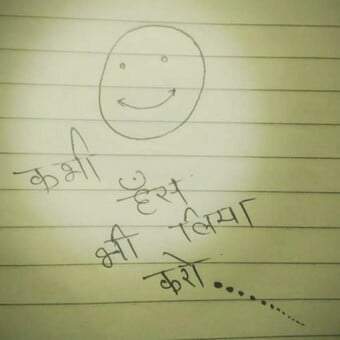 कभी
हँस
भी लिया
करो.........